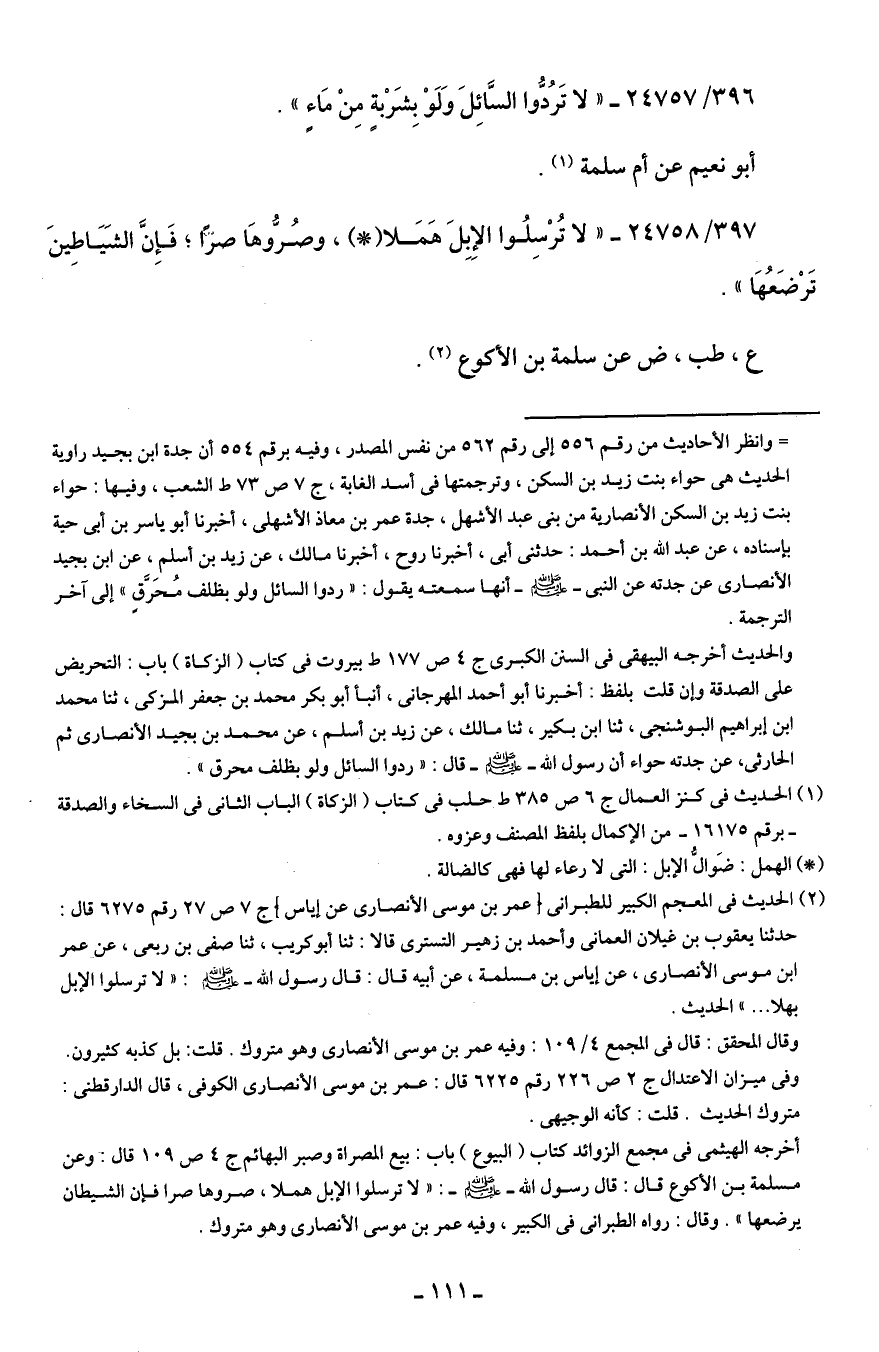 ٣٩٦/ ٢٤٧٥٧ ـ « لا تَرُدُّوا السَّائِلَ وَلَوْ بِشَرْبَةٍ مِنْ مَاءٍ » .
أبو نعيم عن أم سلمة (١) .
٣٩٧/ ٢٤٧٥٨ ـ « لا تُرْسِلُوا الإِبِلَ هَمَلا(*) ، وصُرُّوهَا صرّا ؛ فَإِنَّ الشَّيَاطِينَ
تَرْضَعُهَا » .
ع ، طب ، ض عن سلمة بن الأكوع (٢) .
= وانظر الأحاديث من رقم ٥٥٦ إلى رقم ٥٦٢ من نفس المصدر ، وفيه برقم ٥٥٤ أن جدة ابن بجيد راوية
الحديث هى حواء بنت زيد بن السكن ، وترجمتها فى أسد الغابة ، ج ٧ ص ٧٣ ط الشعب ، وفيها : حواء
بنت زيد بن السكن الأنصارية من بنى عبد الأشهل ، جدة عمر بن معاذ الأشهلى ، أخبرنا أبو ياسر بن أبى حية
بإسناده ، عن عبد الله بن أحمد : حدثنى أبى ، أخبرنا روح ، أخبرنا مالك ، عن زيد بن أسلم ، عن ابن بجيد
الأنصارى عن جدته عن النبى ـ ﷺ ـ أنها سمعته يقول : « ردوا السائل ولو بظلف مُحَرَّقٍ » إلى آخر
الترجمة .
والحديث أخرجه البيهقى فى السنن الكبرى ج ٤ ص ١٧٧ ط بيروت فى كتاب ( الزكاة ) باب : التحريض
على الصدقة وإن قلت بلفظ : أخبرنا أبو أحمد المهرجانى ، أنبأ أبو بكر محمد بن جعفر المزكى ، ثنا محمد
ابن إبراهيم البوشنجى ، ثنا ابن بكير ، ثنا مالك ، عن زيد بن أسلم ، عن محمد بن بجيد الأنصارى ثم
الحارثى، عن جدته حواء أن رسول الله ـ ﷺ ـ قال : « ردوا السائل ولو بظلف محرق » .
(١) الحديث فى كنز العمال ج ٦ ص ٣٨٥ ط حلب فى كتاب ( الزكاة ) الباب الثانى فى السخاء والصدقة
ـ برقم ١٦١٧٥ ـ من الإكمال بلفظ المصنف وعزوه .
(*) الهمل : ضَوالُّ الإبل : التى لا رعاء لها فهى كالضالة .
(٢) الحديث فى المعجم الكبير للطبرانى { عمر بن موسى الأنصارى عن إياس } ج ٧ ص ٢٧ رقم ٦٢٧٥ قال :
حدثنا يعقوب بن غيلان العمانى وأحمد بن زهير التسترى قالا : ثنا أبوكريب ، ثنا صفى بن ربعى ، عن عمر
ابن موسى الأنصارى ، عن إياس بن مسلمة ، عن أبيه قال : قال رسول الله ـ ﷺ : « لا ترسلوا الإبل
بهلا... » الحديث .
وقال المحقق : قال فى المجمع ٤/ ١٠٩ : وفيه عمر بن موسى الأنصارى وهو متروك . قلت: بل كذبه كثيرون.
وفى ميزان الاعتدال ج ٢ ص ٢٢٦ رقم ٦٢٢٥ قال : عمر بن موسى الأنصارى الكوفى ، قال الدارقطنى :
متروك الحديث . قلت : كأنه الوجيهى .
أخرجه الهيثمى فى مجمع الزوائد كتاب ( البيوع ) باب : بيع المصراة وصبر البهائم ج ٤ ص ١٠٩ قال : وعن
مسلمة بن الأكوع قال : قال رسول الله ـ ﷺ ـ : « لا ترسلوا الإبل هملا ، صروها صرا فإن الشيطان
يرضعها » . وقال : رواه الطبرانى فى الكبير ، وفيه عمر بن موسى الأنصارى وهو متروك .
ـ ١١١ ـ